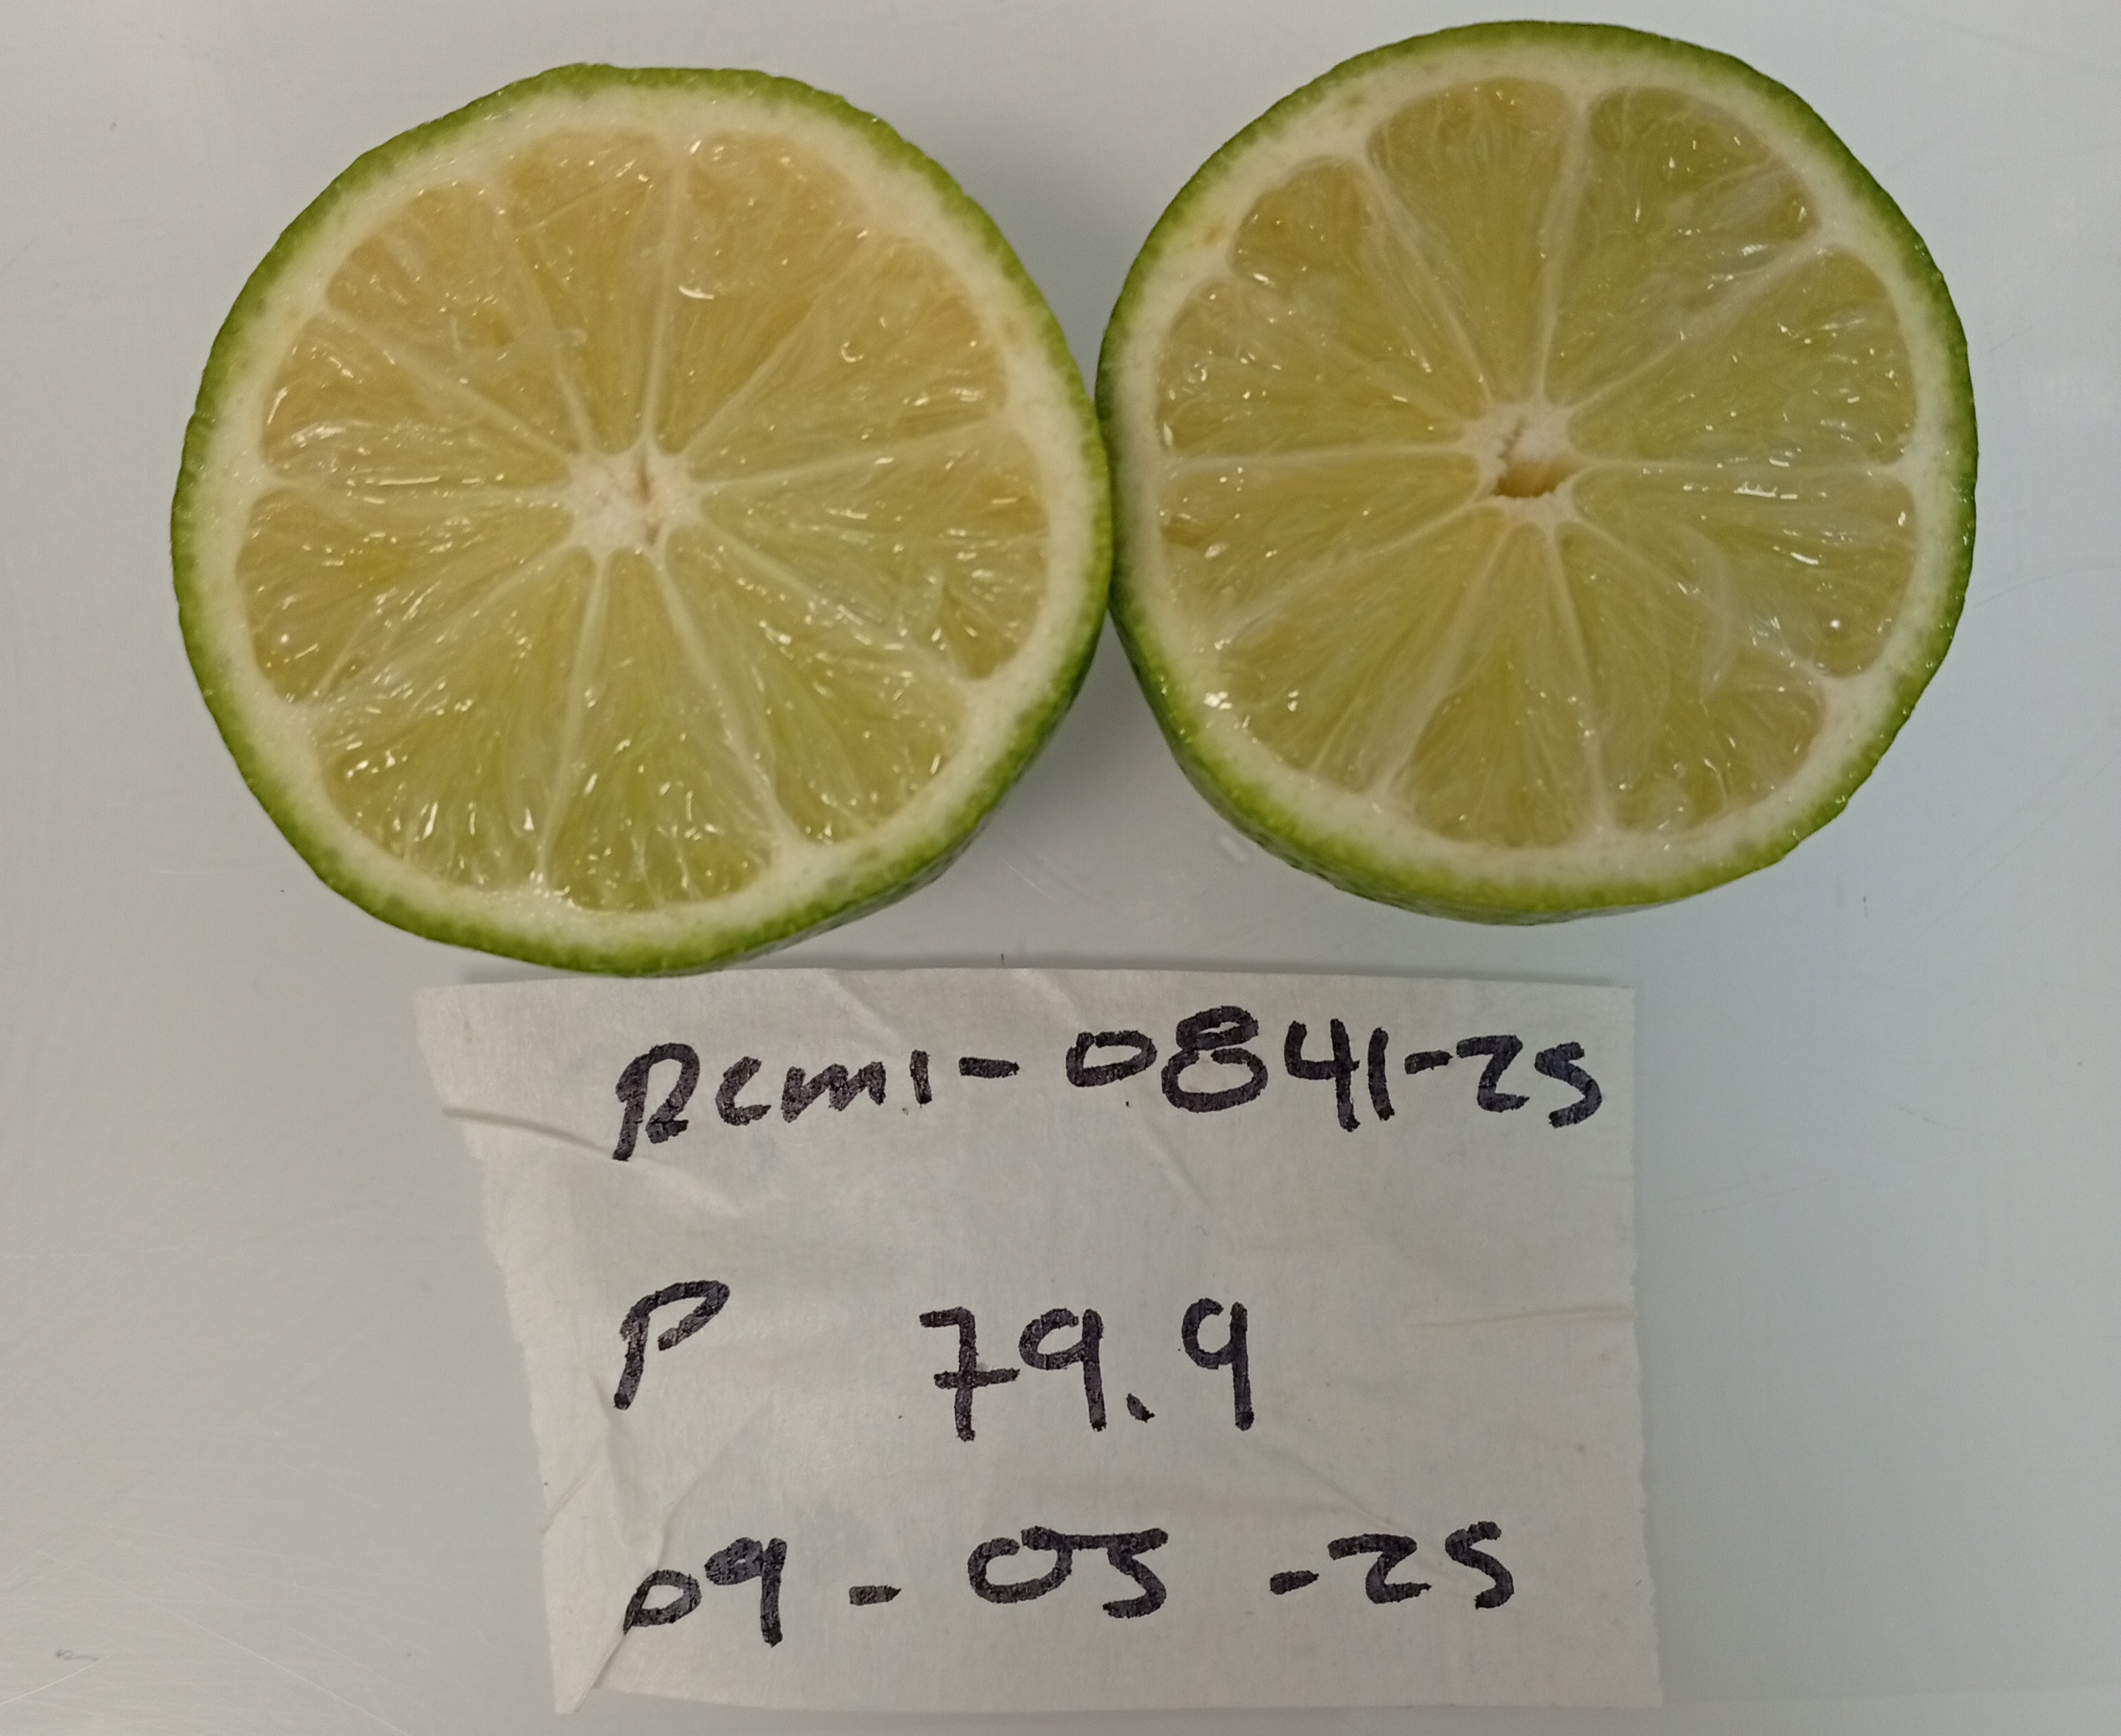 Rcm1-0841-25
P 79.9
09-05-25